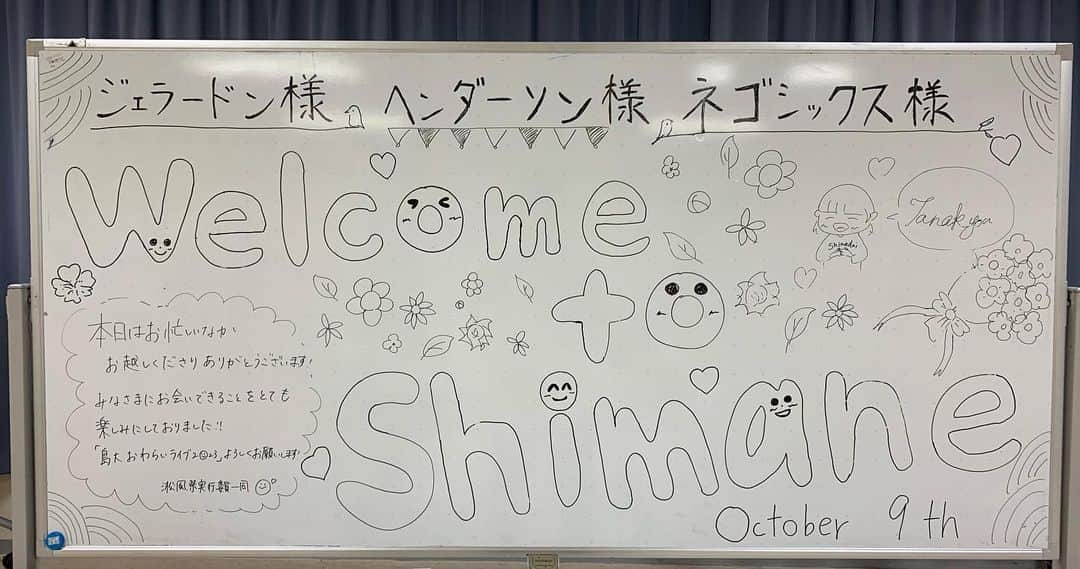 ジェラードン様 ヘンダーソン様 ネゴシックス様
Welcome
to
Shimane
Shimadai
本日はお忙しいなか
お越しくださりありがとうございます!
みなさまにお会いできることをとても
楽しみにしておりました!!
「島大 おわらいライブ2023」よろしくお願いします!
淞風祭実行委員一同
October 9th